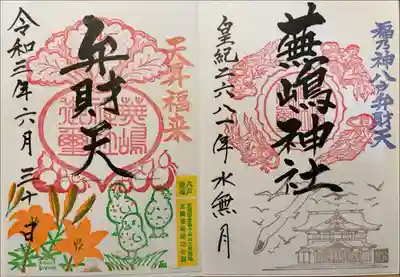 天昇福来
弁財天
蕪嶋
令和三年六月三十日
福乃神八戸弁財天
蕪嶋神社
皇紀二六八一年 水無月